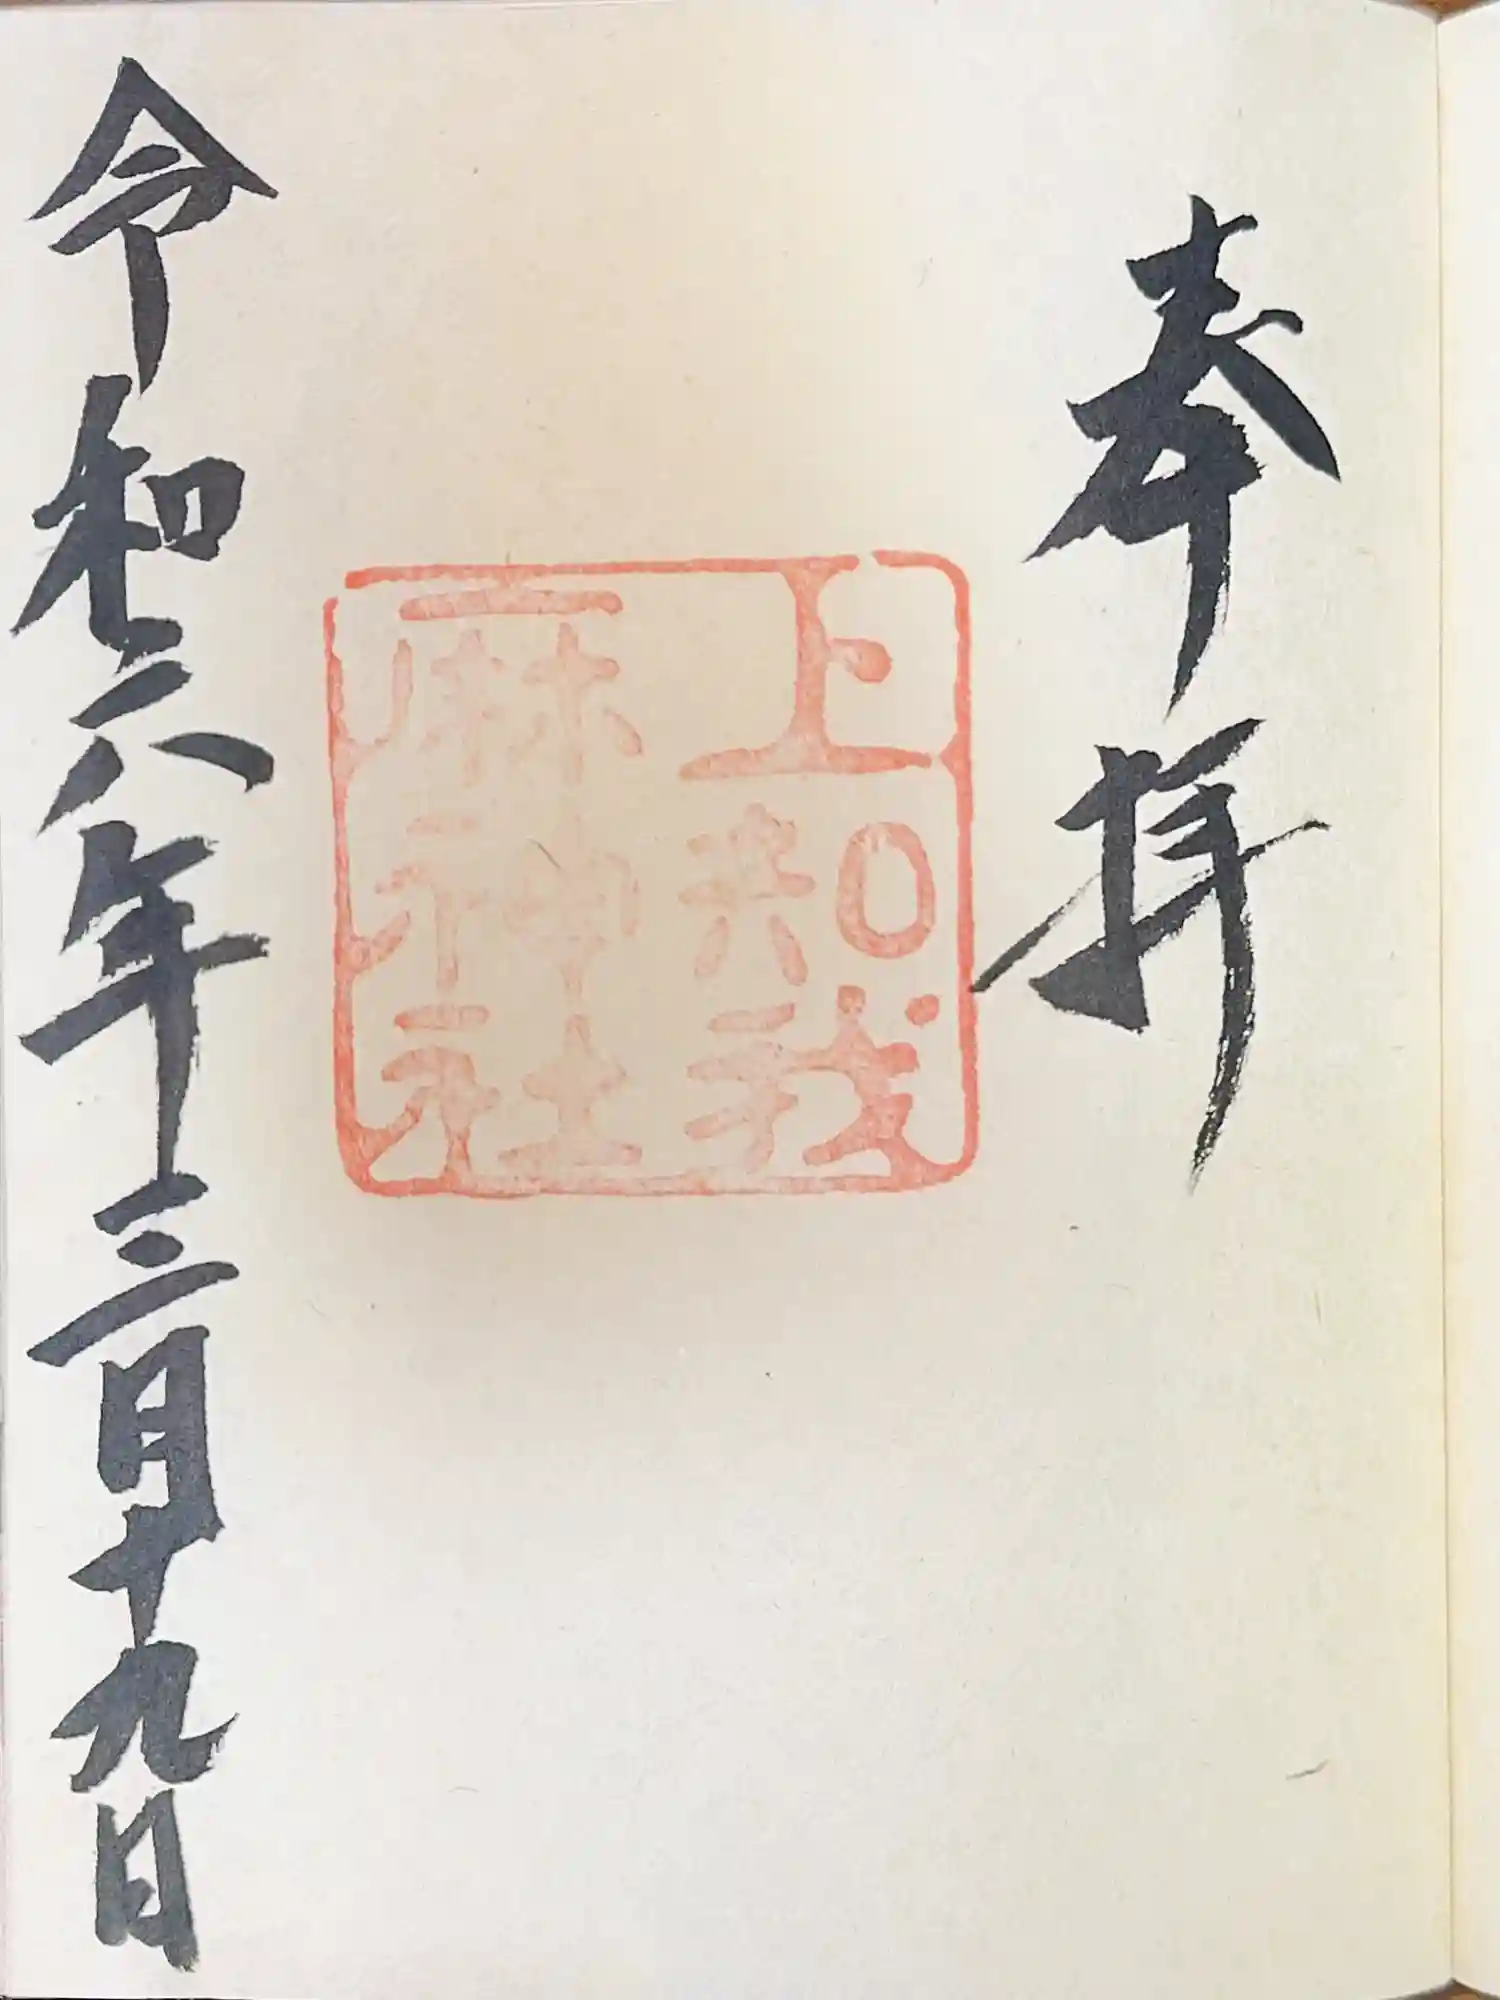 奉拝
上知我
麻神社
令和六年三月十九日